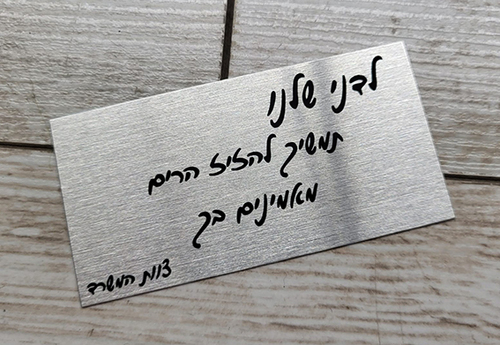 לדני שלנו
תמשיך להזיז הרים
מאמינים בך
צוות המשרד